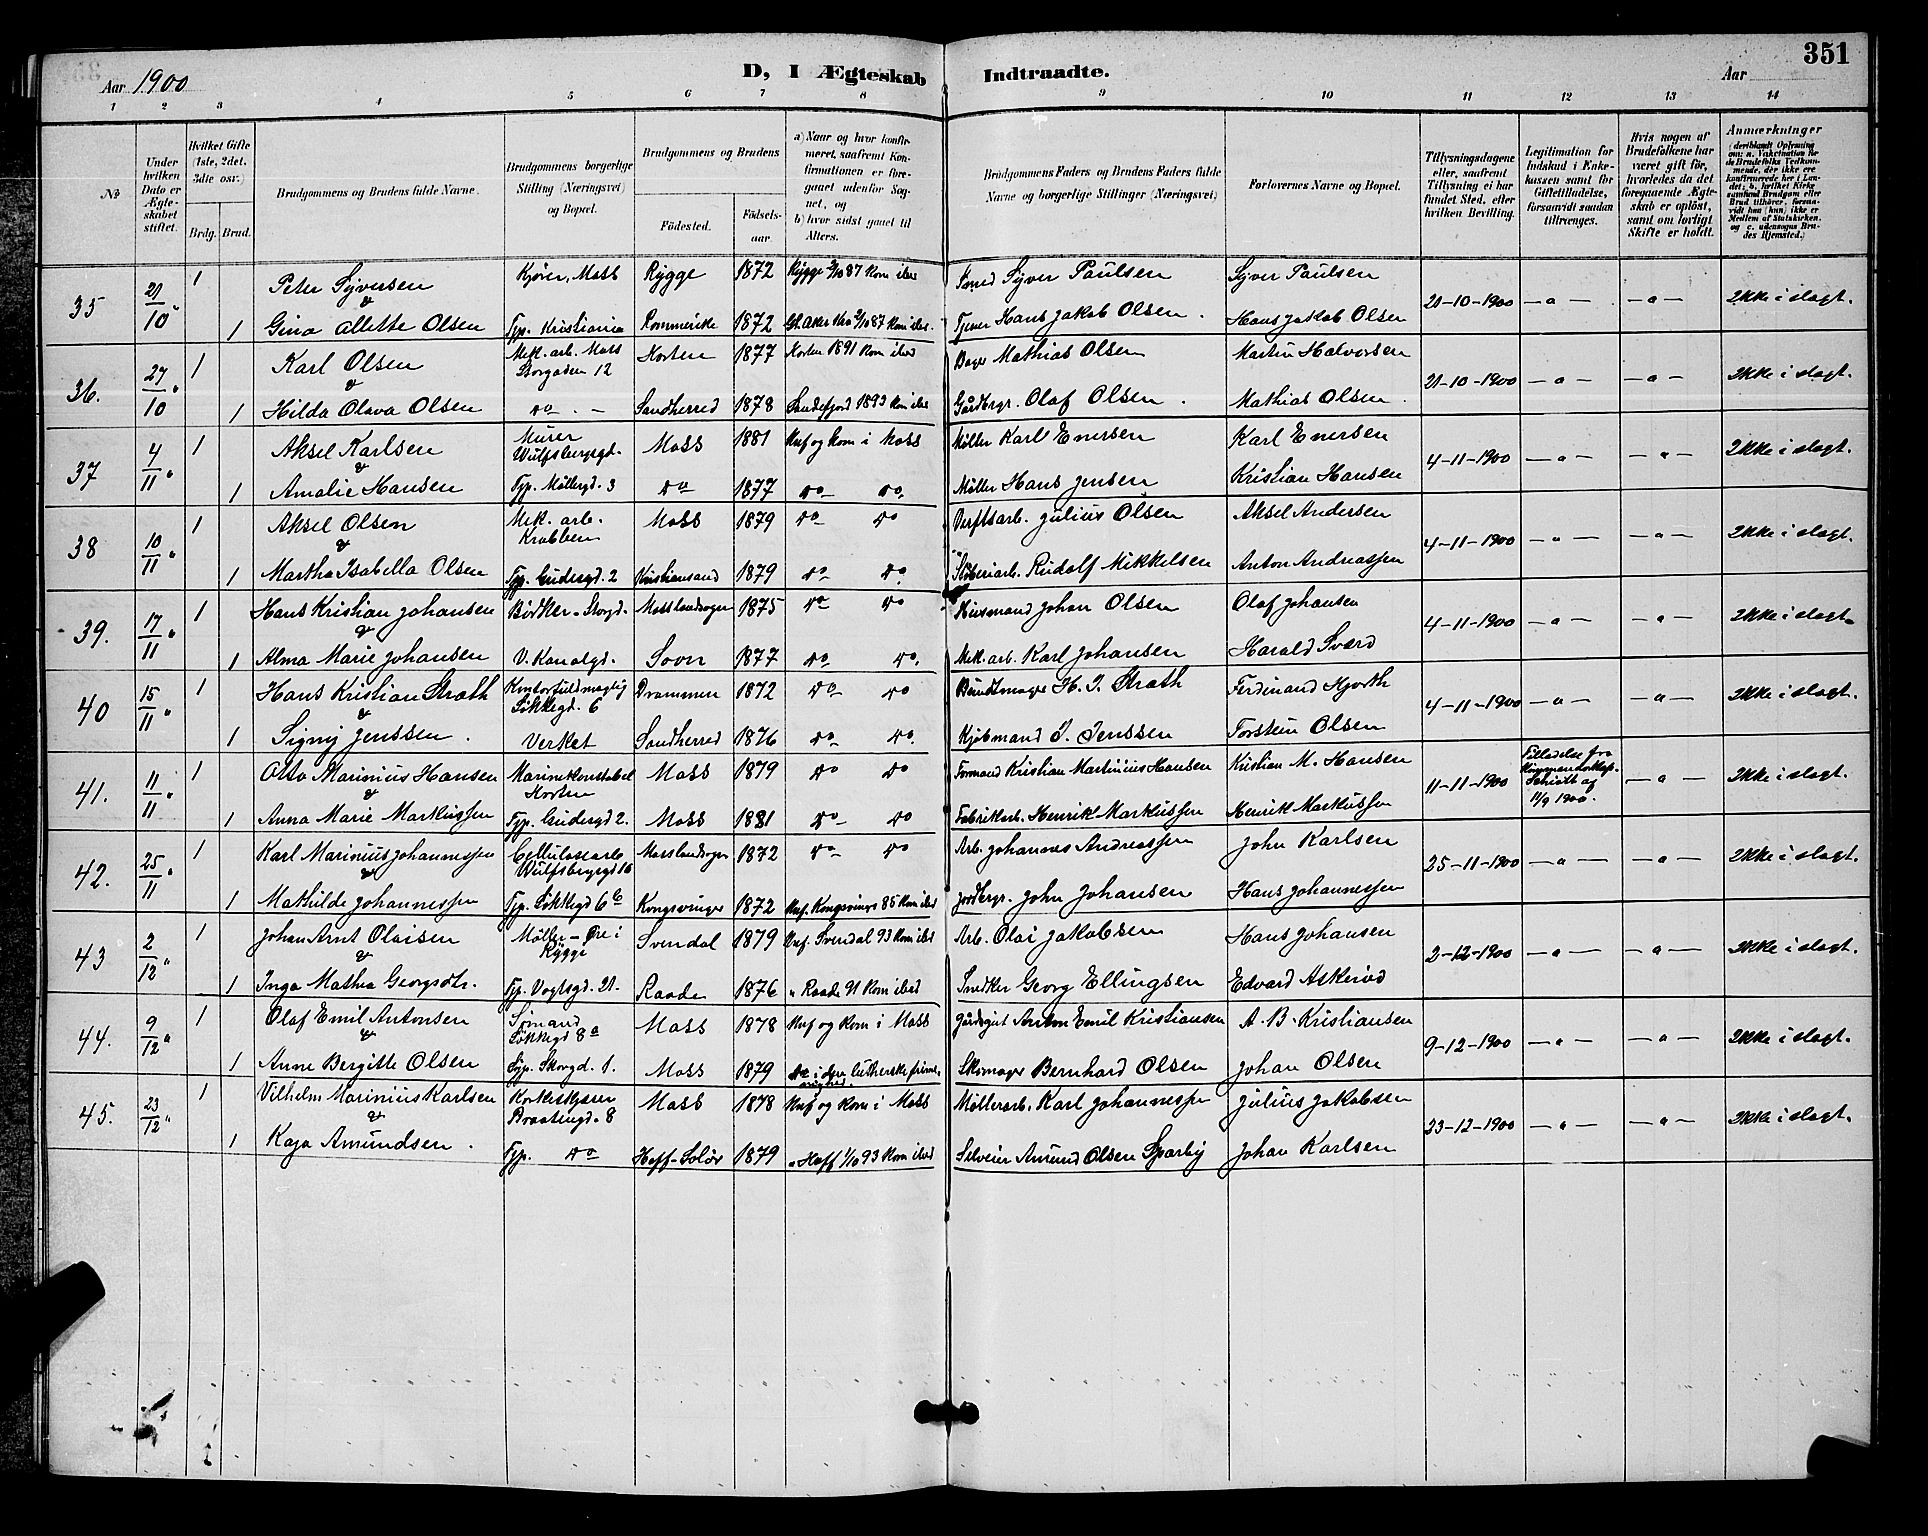 351
Aar 1900 D, I Ægteskab Indtraadte. Aar
1 2 3 4 5 6 7 8 9 10 11 12 13 14
No
Under hvilken Dato er Ægteskabet stiftet.
Hvilket Gifte (1ste, 2det, 3die osv.)
Brdg. Brud.
Brudgommens og Brudens fulde Navne.
Brudgommens borgerlige Stilling (Næringsvei) og Bopæl.
Brudgommens og Brudens
Fødested. Fødselsaar.
a) Naar og hvor konfirmeret, saafremt Konfirmationen er foregaaet udenfor Sognet, og
b) hvor sidst gaaet til Alters.
Brudgommens Faders og Brudens Faders fulde Navne og borgerlige Stillinger (Næringsvei)
Forlovernes Navne og Bopæl.
Tillysningsdagene eller, saafremt Tillysning ei har fundet Sted, efter hvilken Bevilling.
Legitimation for Indskud i Enkekassen samt for Giftetilladelse, forsaavidt saadan tiltrænges.
Hvis nogen af Brudefolkene har været gift før, hvorledes da det foregaaende Ægteskab er opløst, samt om lovligt Skifte er holdt.
Anmærkninger
35 21/10 1 Peter Syversen Kjører, Moss Rygge 1872 Rygge 2/10 87 Kom ibid Smed Syver Paulsen Syver Paulsen 21-10-1900 —"— —"— Ikke i slægt.
&
1 Gina Alette Olsen Tjp. Kristiania Rommerike 1872 Tjener Hans Jakob Olsen. Hans Jakob Olsen
36. 27/10 1 Karl Olsen Mek. arb. Moss Storgaden 12 Horten 1877 Horten 1891 Kom ibid Bager Mathias Olsen Martin Halvorsen 21-10-1900 —"— —"— Ikke i slægt.
&
1 Hilda Olava Olsen do. — Sandherred 1878 Sandefjord 1893 Kom ibid Gårdbrgr. Olaf Olsen. Mathias Olsen.
37 4/11 1 Aksel Karlsen Murer Wulfsbergsgd. Moss 1881 Knf og kom i Moss Møller Karl Enersen Karl Enersen 4-11-1900 —"— —"— Ikke i slægt.
&
1 Amalie Hansen Tjp. Møllergd. 3 do 1877 do do. Møller Hans Jensen Kristian Hansen
38 10/11 1 Aksel Olsen Mek. arb. Krabben Moss 1879 do do Verftsarb. Julius Olsen Aksel Andersen 4-11-1900 —"— —"— Ikke i slægt.
&
1 Martha Isabella Olsen Tjp. Gudesgd. 2 Kristiansand 1879 do do. Støberiarb. Rudolf Mikkelsen Anton Andreassen
39. 17/11 1 Hans Kristian Johansen Bødker - Storgd. Moss landsogn 1875 do do Husmand Johan Olsen Olaf Johansen 4-11-1900 —"— —"— Ikke i slægt.
&
1 Alma Marie Johansen V. Kanalgd. Soon 1877 do do. Mek. arb. Karl Johansen Harald Sværd
40 15/11 1 Hans Kristian Strøth Kontorfuldmægtig Løkkegd. 6 Drammen 1872 do do Bundtmager H. J. Strøth Ferdinand Hjorth 4-11-1900 —"— —"— Ikke i slægt.
&
1 Signy Jenssen. Verket Sandherred 1876 do do. Kjøbmand J. Jenssen Torstein Olsen
41. 11/11 1 Otto Marinius Hansen Marinekonstabel Horten Moss 1879 do do Formand Kristian Martinius Hansen Kristian M. Hansen 11-11-1900 Tilladelse fra 11/9 1900. —"— Ikke i slægt.
&
1 Anna Marie Markussen Tjp. Gudesgd 2. Moss 1881 do do Fabrikarb. Henrik Markussen Henrik Markussen
42. 25/11 1 Karl Marinius Johannessen Cellulosearb Wulfsbergsgd 16 Moss landsogn 1872 do do Arb. Johannes Andreassen John Karlsen 25-11-1900 —"— —"— Ikke i slægt.
&
1 Mathilde Johannessen Tjp. Løkkegd 6b Kongsvinger 1872 Knf. Kongsvinger 85 Kom ibid Jordbrgr. John Johansen Hans Johannessen
43 2/12 1 Johan Arnt Olaisen Møller - Øre i Rygge Svendal 1879 Knf. Svendal 93 Kom ibid Arb. Olai Jakobsen Hans Johansen 2-12-1900 —"— —"— Ikke i slægt.
&
1 Inga Mathea Georgsdtr. Tjp. Vogtsgd. 21. Raade 1876 " Raade 91 Kom ibid Snedker Georg Ellingsen Edvard Askerød
44. 9/12 1 Olaf Emil Antonsen Sømand Løkkegd 8a Moss 1878 Knf og kom i Moss Gårdsgut Anton Emil Kristiansen A. B. Kristiansen 9-12-1900 —"— —"— Ikke i slægt.
&
1 Anne Bergitte Olsen Tjp. Skovgd. 1. Moss 1879 do i den lutherske frimenighed. Skomager Bernhard Olsen Johan Olsen
45. 23/12 1 Vilhelm Marinius Karlsen Korkskjærer Braatengd. 8 Moss 1878 Knf og kom i Moss Møllerarb. Karl Johannessen Julius Jakobsen 23-12-1900 —"— —"— Ikke i slægt.
&
1 Kaja Amundsen. Tjp. do Hoff-Solør 1879 " Hoff 1/10 93 Kom ibid Selveier Amund Olsen Sparby Johan Karlsen